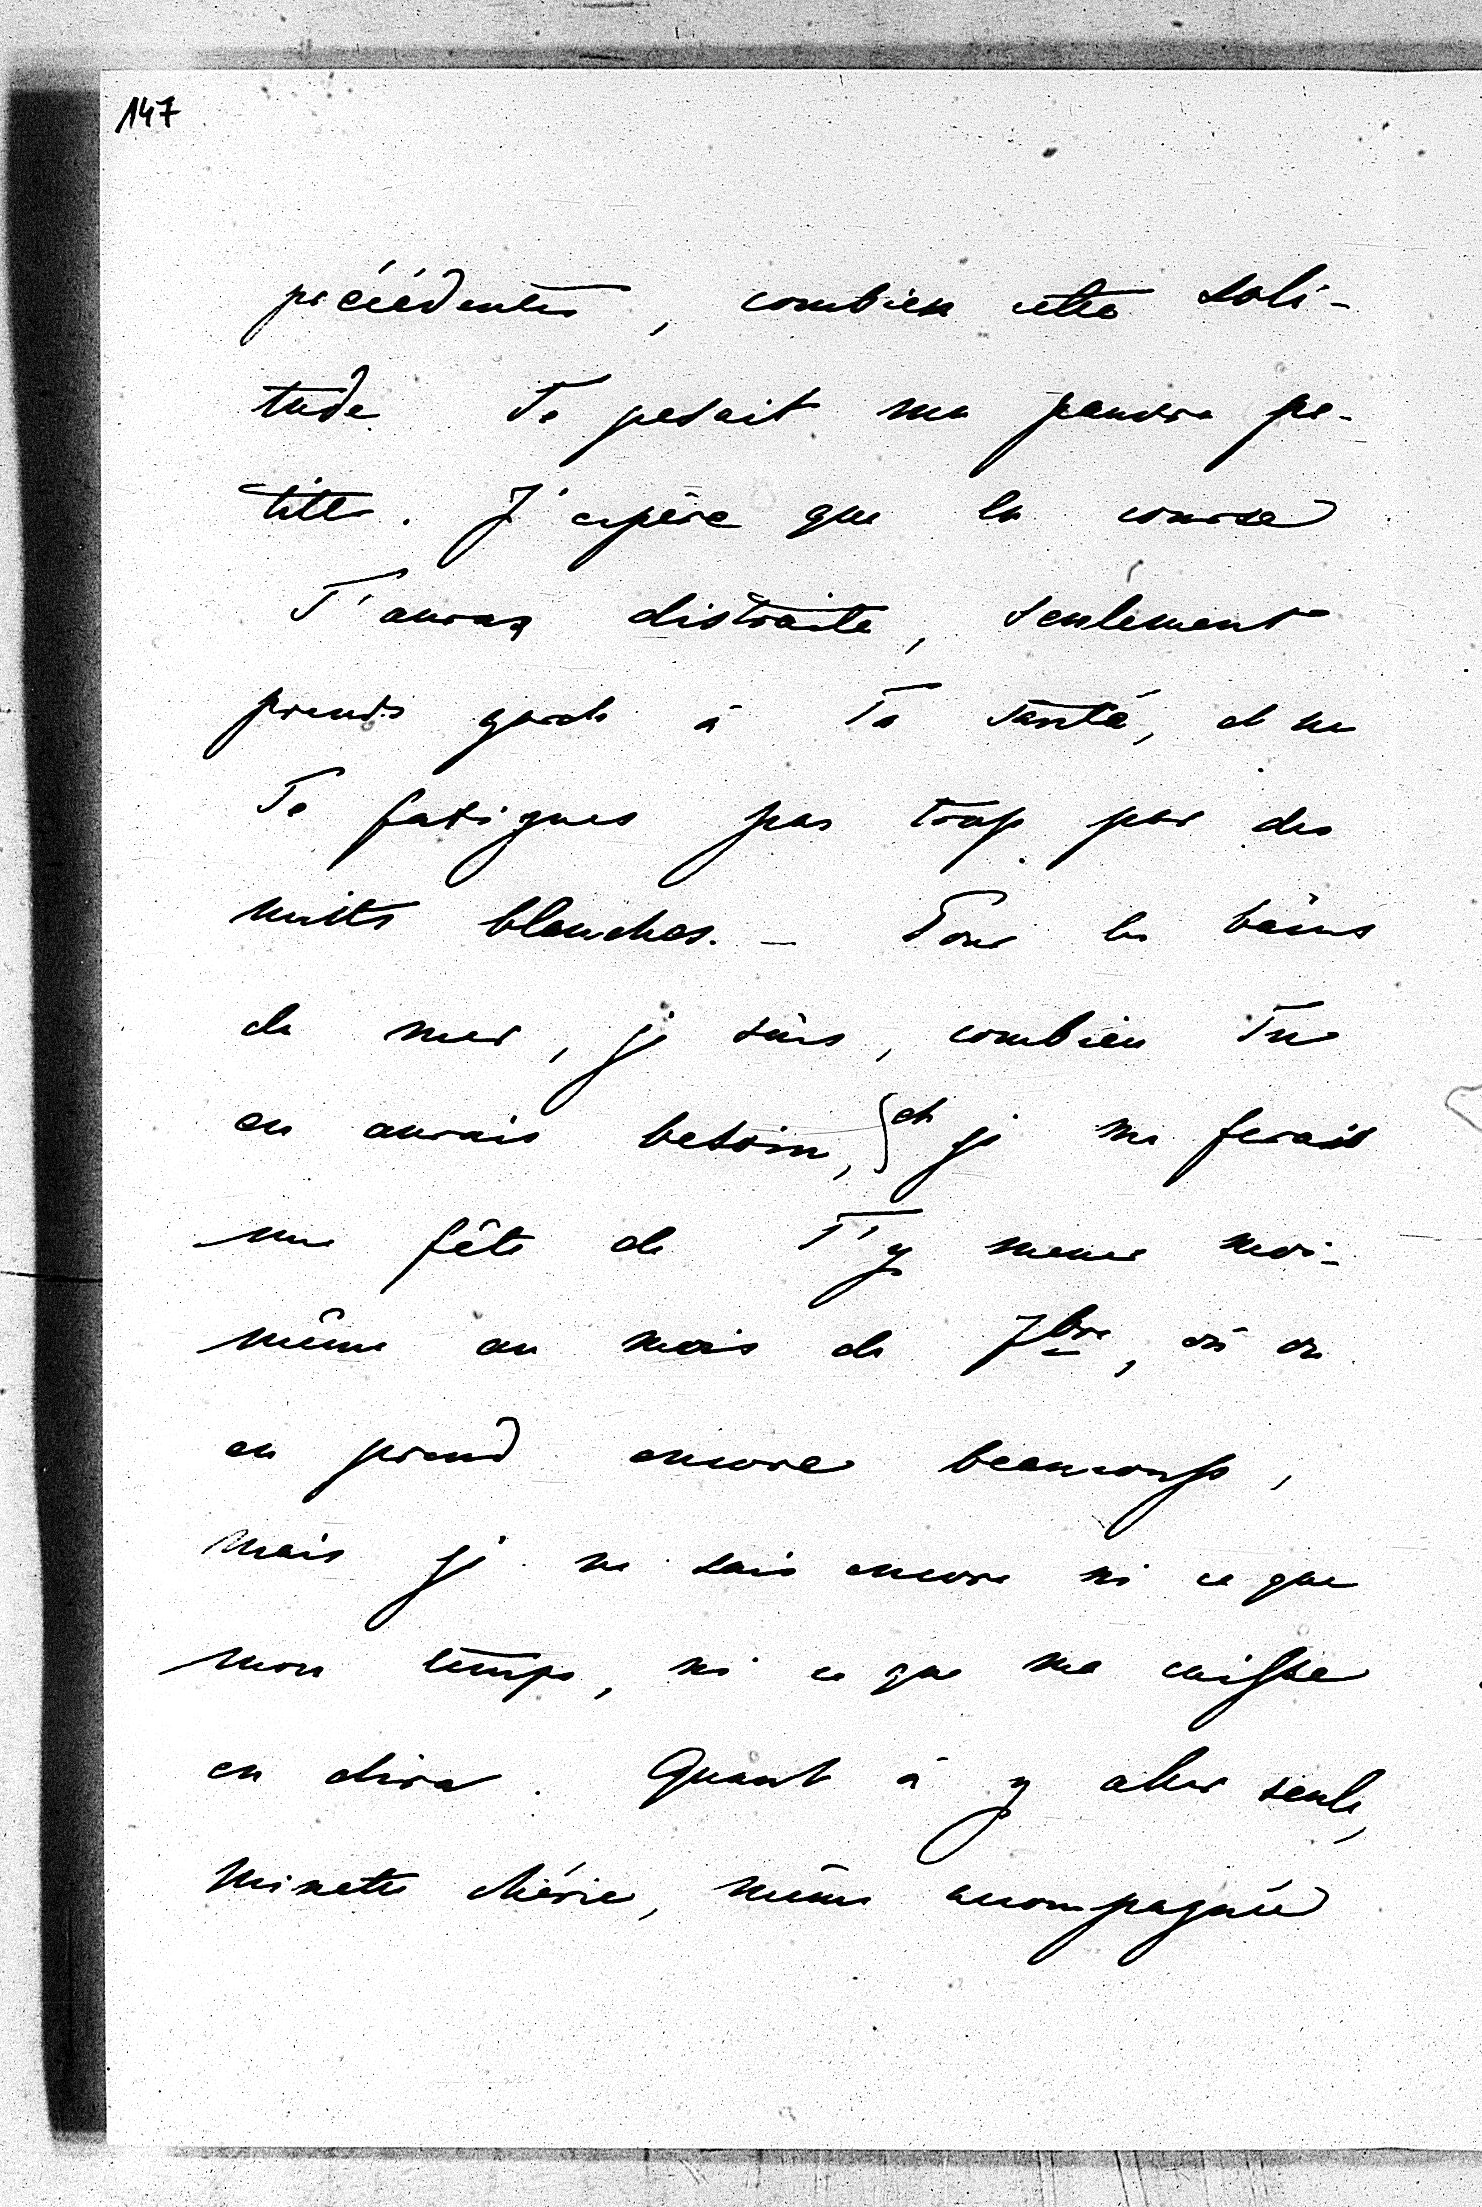 147
précédentes, combien cette soli-
tude Te pesait ma pauvre pe-
tite. J'espère que la course
T'aura distraite, seulement
prends garde à Ta santé, et ne
Te fatigues pas trop par des
nuits blanches. — Pour les bains
de mer, je sais, combien Tu
en aurais besoin, et je me ferais
une fête de T'y mener moi-
même au mois de 7bre, où on
en prend encore beaucoup,
mais je ne sais encore ni ce que
mon temps, ni ce que ma caisse
en dira. Quant à y aller seule,
Minette chérie, même accompagnée